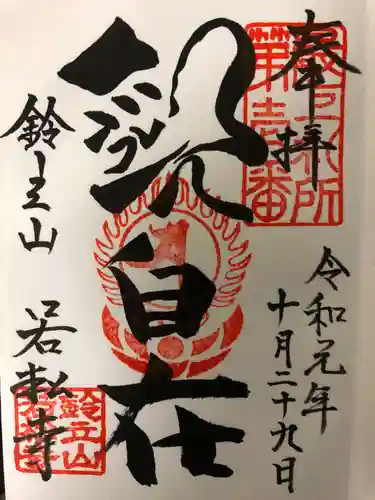 奉拝
最上札所
第壱番
令和元年
十月二十九日
観自在
鈴立山
若松寺
鈴立山
若松寺